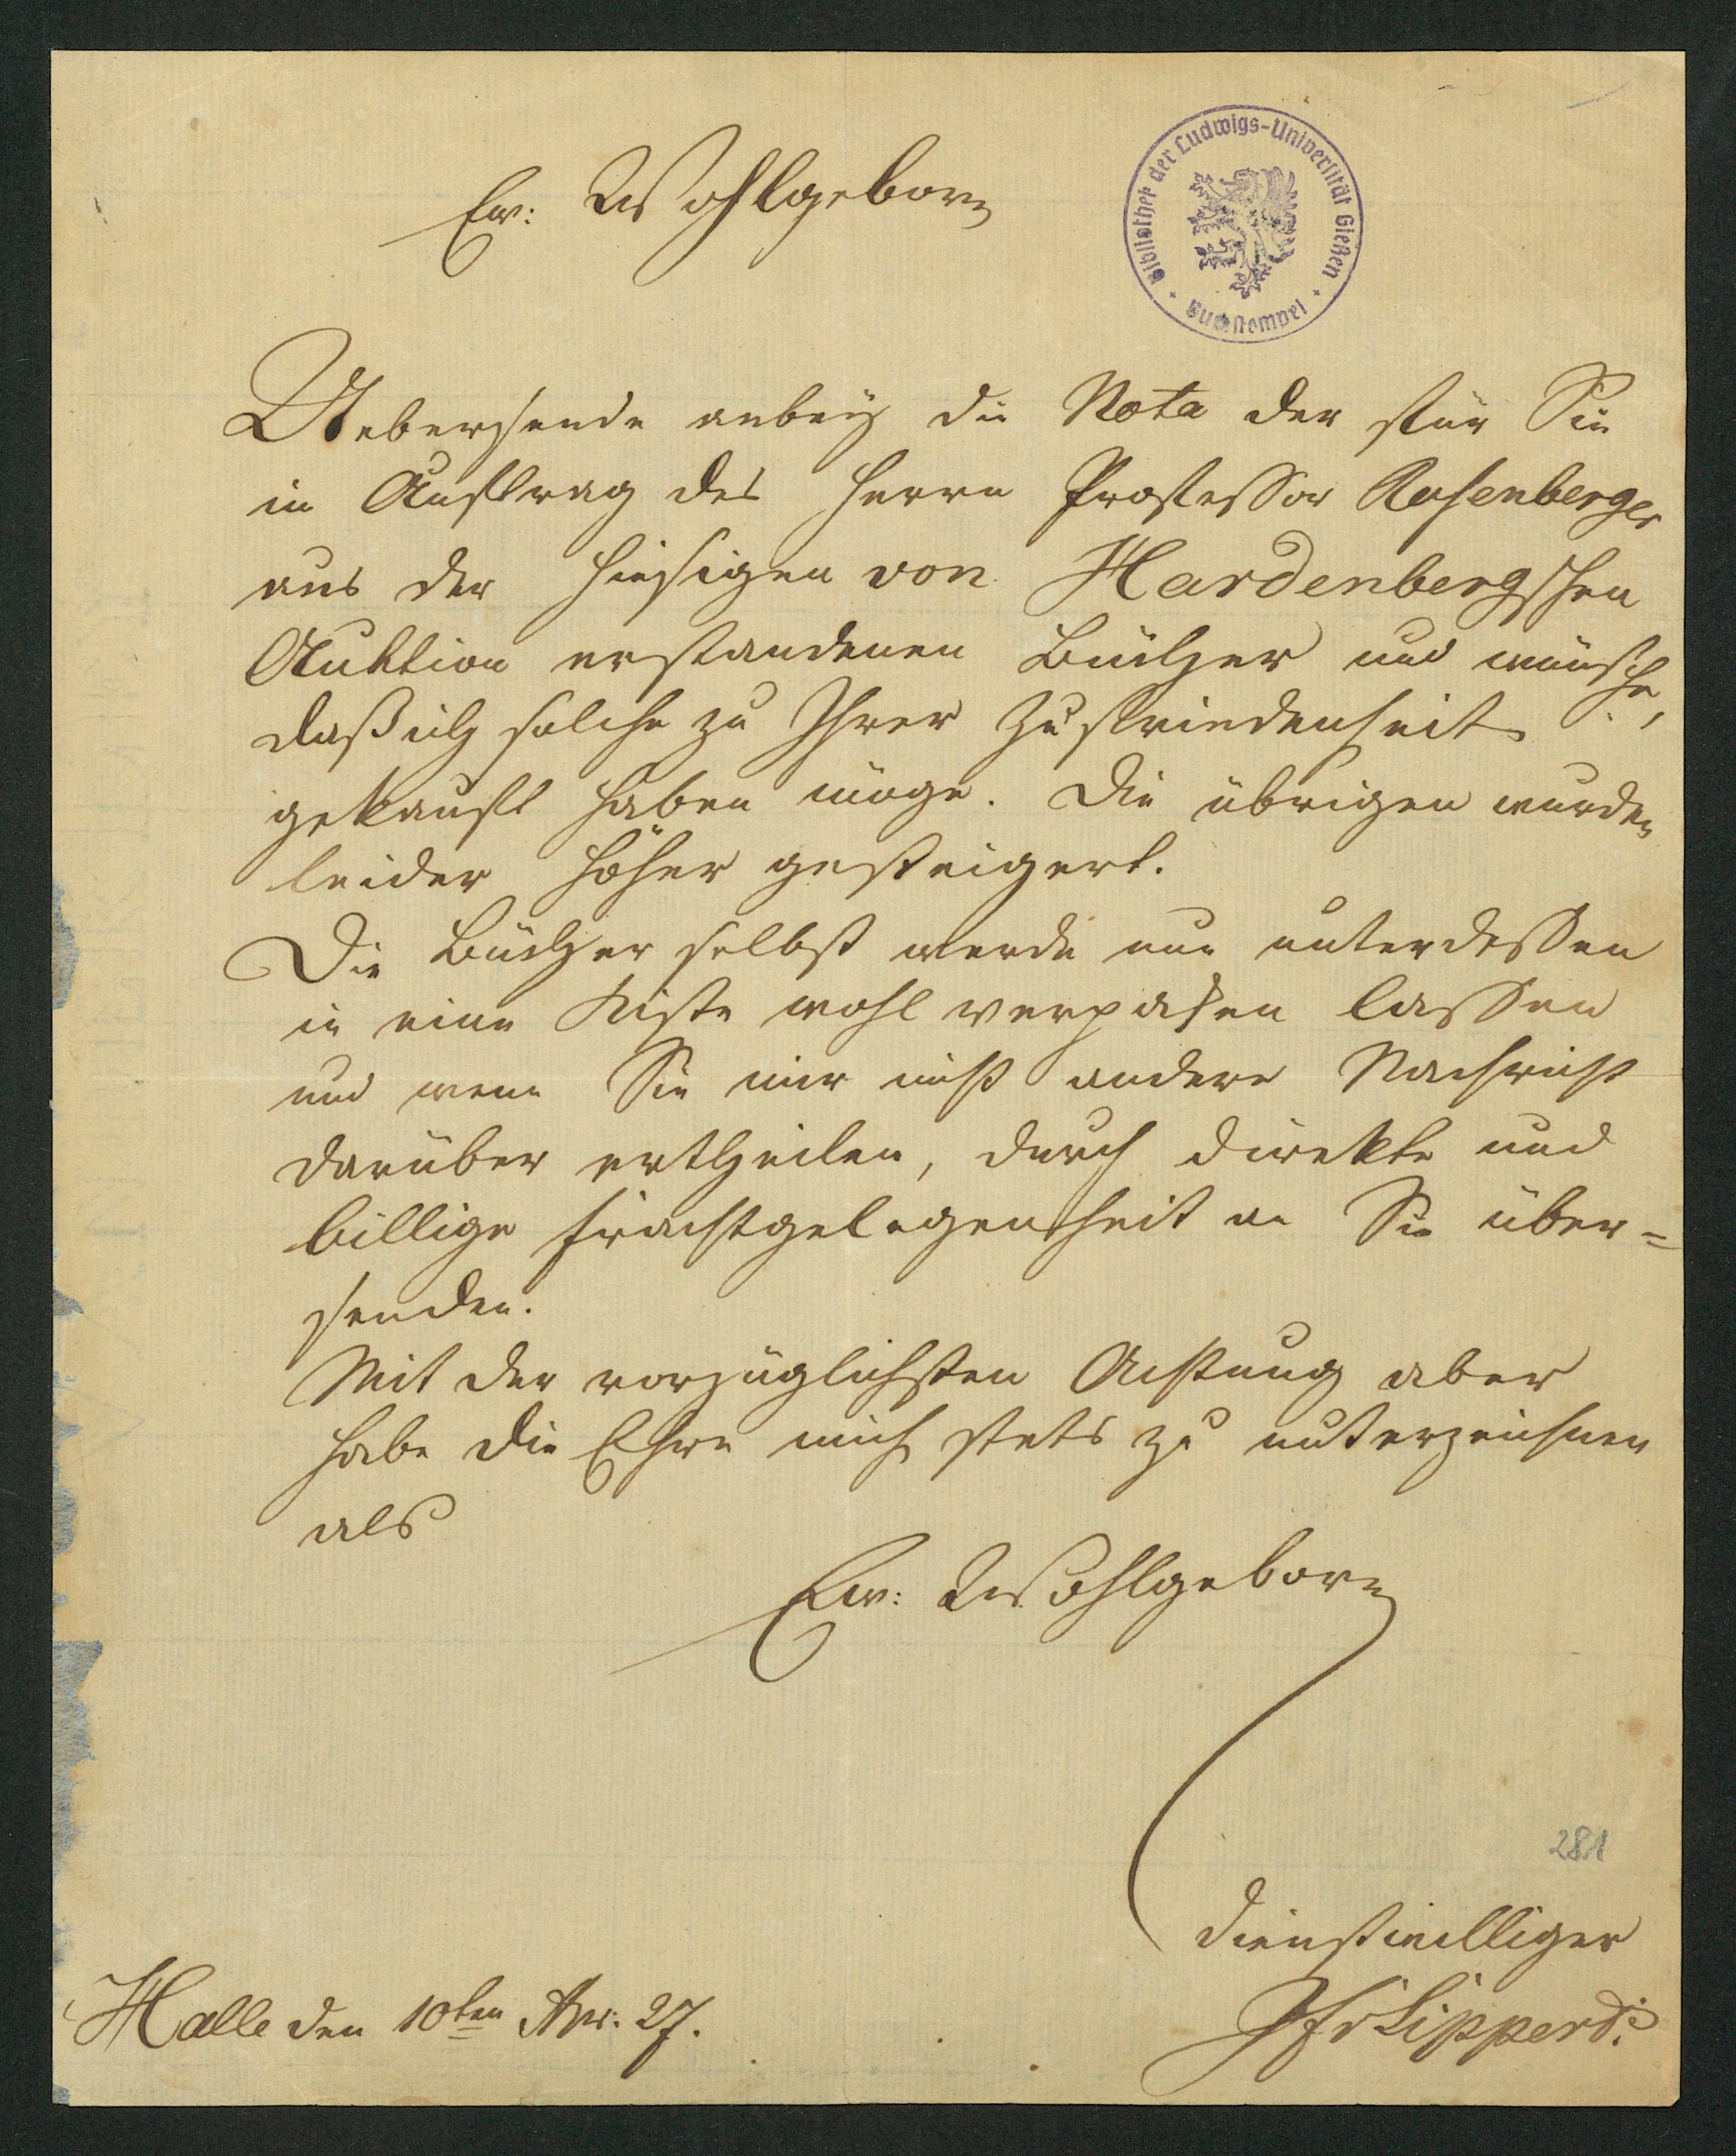 Ew: Wohlgeborn
Bibliothek der Ludwigs-Universität Gießen
Buchstempel
Uebersende anbey die Nota der für Sie
in Auftrag des Herrn Professor Rosenberger
aus der hiesigen von Hardenbergschen
Auktion erstandenen Bücher und wünsche,
daß ich solche zu Ihrer Zufriedenheit
gekauft haben möge. Die übrigen wurden
leider höher gesteigert.
Die Bücher selbst werde nun unterdessen
in eine Kiste wohl verpaken lassen
und wenn Sie mir nicht andere Nachricht
darüber ertheilen, durch direkte und
billige Frachtgelegenheit an Sie über=
senden.
Mit der vorzüglichsten Achtung aber
habe die Ehre mich stets zu unterzeichnen
als
Ew: Wohlgeborn
281
dienstwilliger
Lippert:
Halle den 10ten Apr: 27.